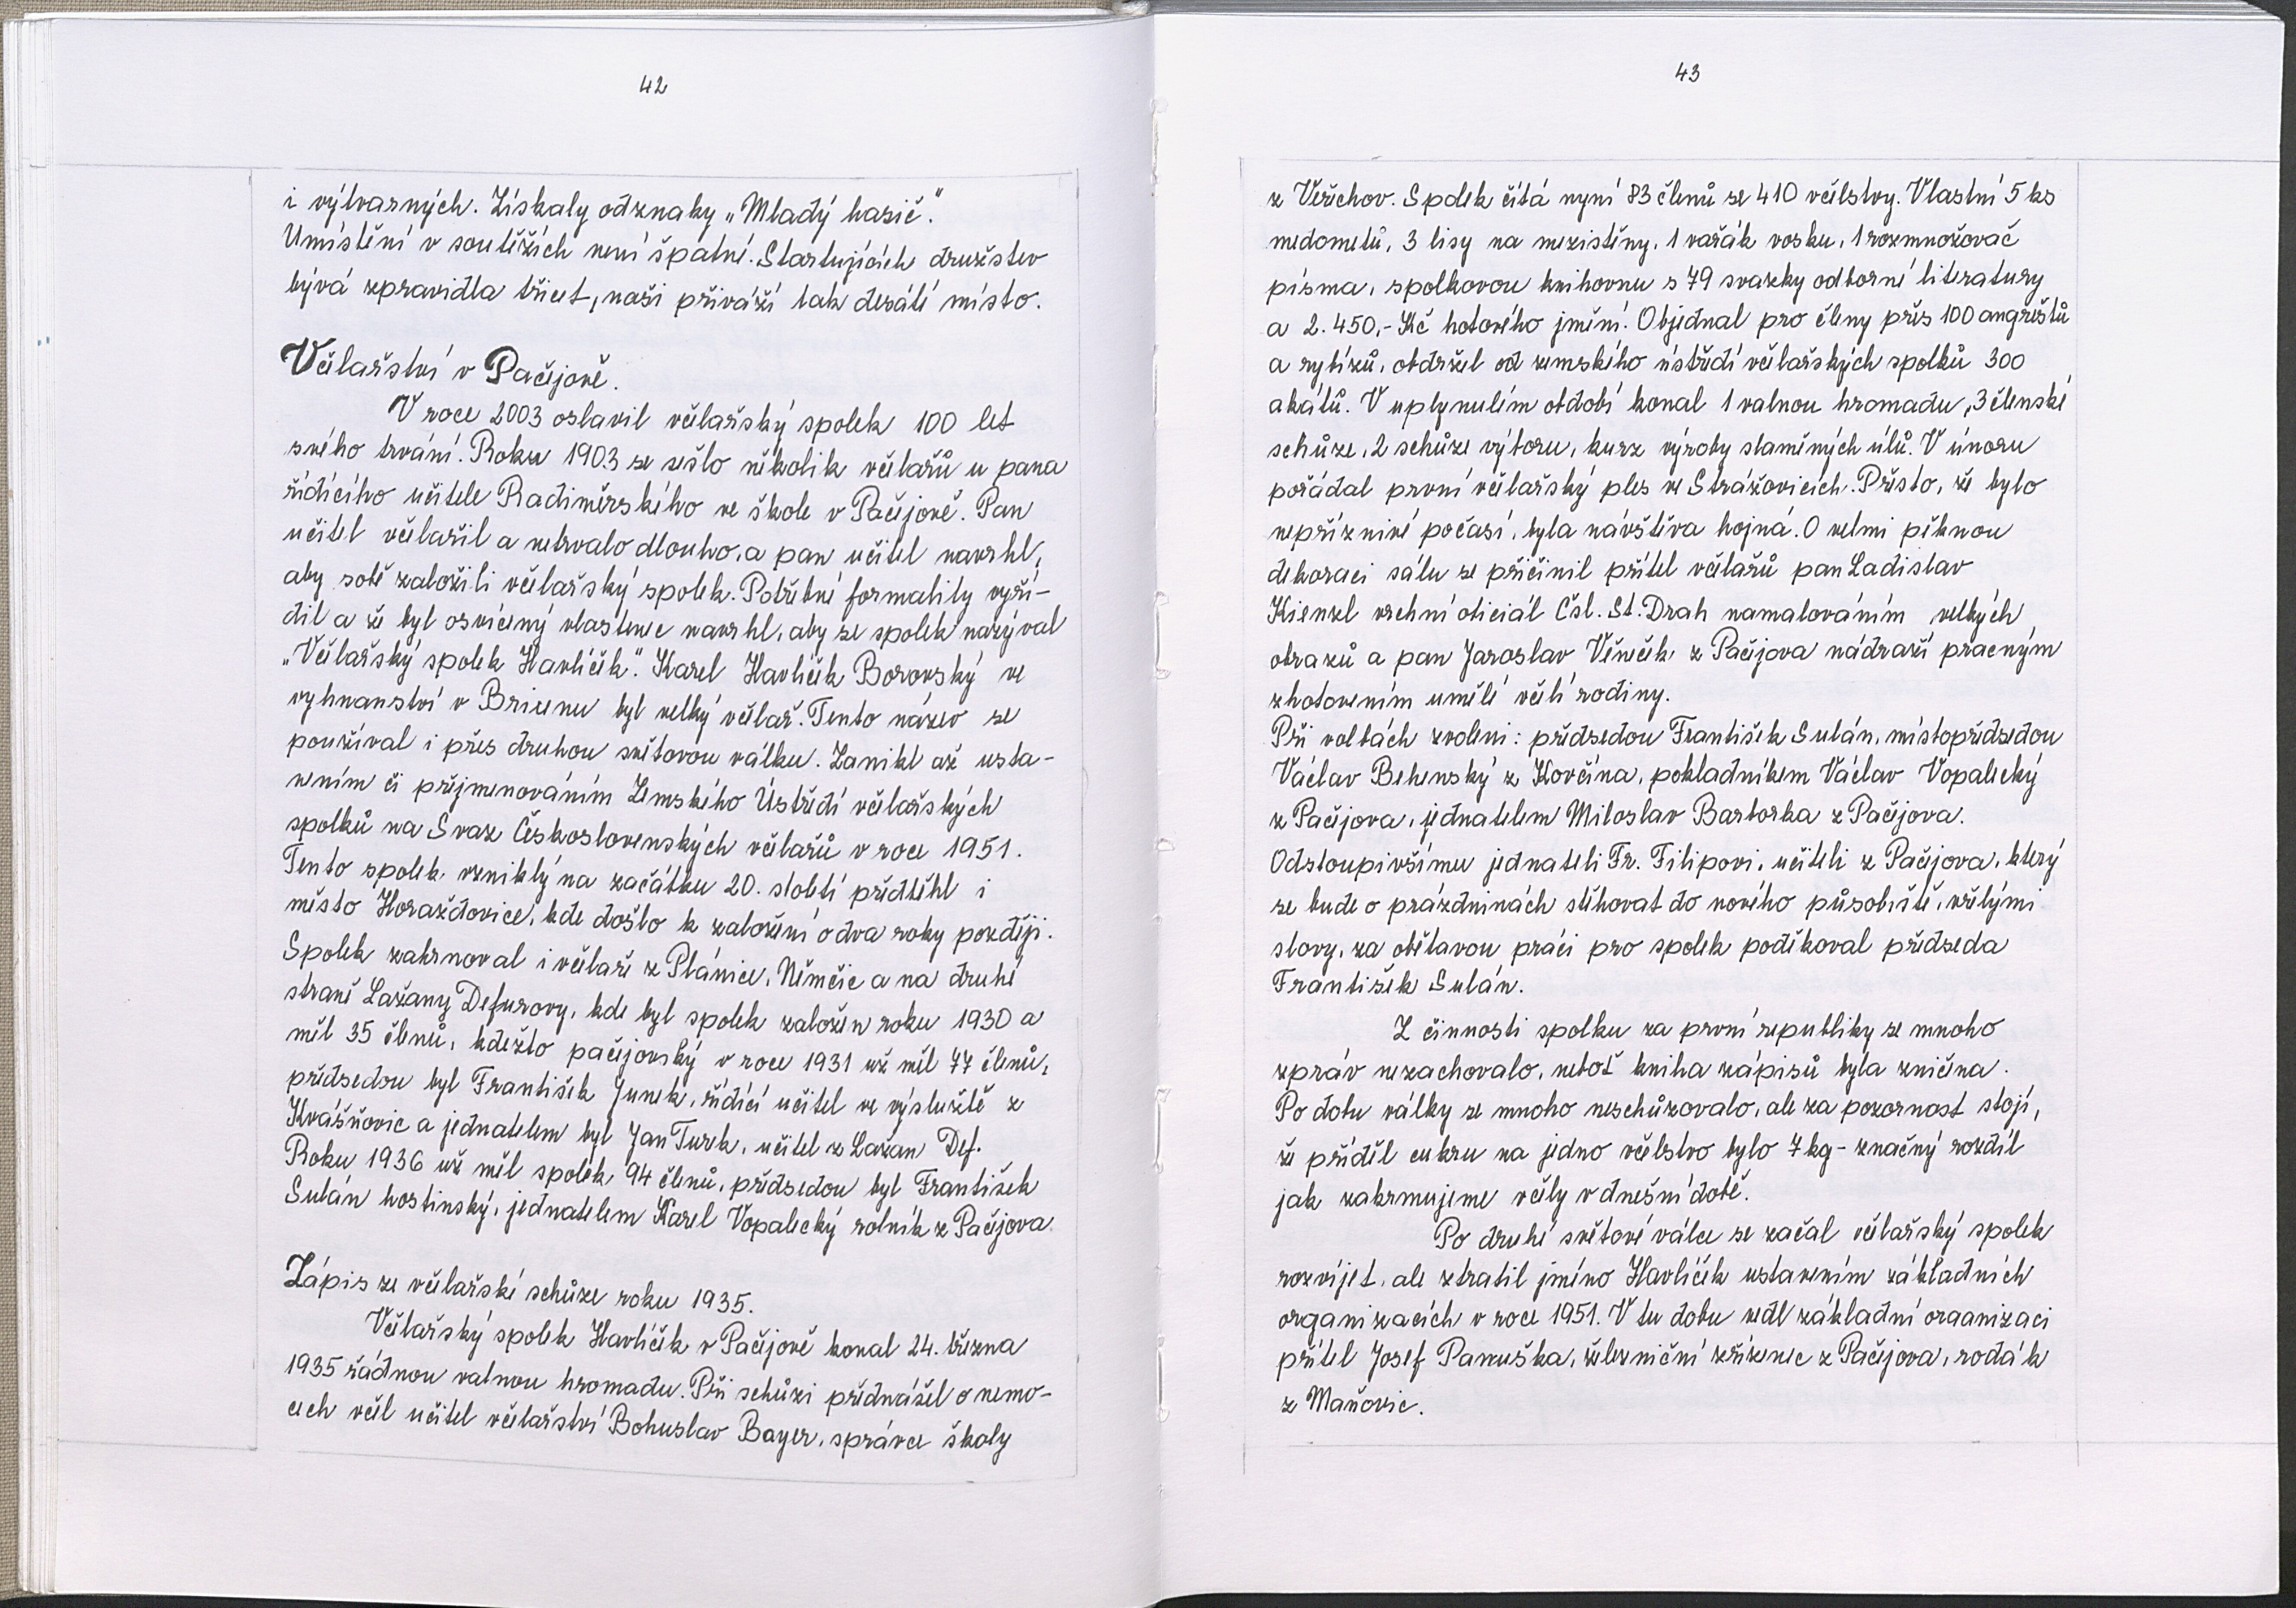 42
i výtvarných. Získaly odznaky „Mladý hasič."
Umístění v soutěžích není špatné. Startujících družstev
bývá zpravidla třicet, naši přiváží tak desáté místo.
Včelařství v Pačejově.
V roce 2003 oslavil včelařský spolek 100 let
svého trvání. Roku 1903 se sešlo několik včelařů u pana
řídícího učitele Radiměrského ve škole v Pačejově. Pan
učitel včelařil a netrvalo dlouho, a pan učitel navrhl,
aby sobě založili včelařský spolek. Potřebné formality vyří-
dil a že byl osvícený vlastenec navrhl, aby se spolek nazýval
„Včelařský spolek Havlíček". Karel Havlíček Borovský ve
vyhnanství v Brixenu byl velký včelař. Tento název se
používal i přes druhou světovou válku. Zanikl až usta-
vením či přejmenováním Zemského Ústředí včelařských
spolků na Svaz Československých včelařů v roce 1951.
Tento spolek vzniklý na začátku 20. století předběhl i
město Horažďovice, kde došlo k založení o dva roky později.
Spolek zahrnoval i včelaře z Plánice, Němčic a na druhé
straně Lažany Defurovy, kde byl spolek založen roku 1930 a
měl 35 členů, kdežto pačejovský v roce 1931 už měl 77 členů,
předsedou byl František Junek, řídící učitel ve výslužbě z
Kvášňovic a jednatelem byl Jan Turek, učitel z Lažan Def.
Roku 1936 už měl spolek 94 členů, předsedou byl František
Sulán hostinský, jednatelem Karel Vopalecký rolník z Pačejova.
Zápis ze včelařské schůze roku 1935.
Včelařský spolek Havlíček v Pačejově konal 24. března
1935 řádnou valnou hromadu. Při schůzi přednášel o nemo-
cech včel učitel včelařství Bohuslav Bayer, správce školy
43
z Veřechov. Spolek čítá nyní 83 členů se 410 včelstvy. Vlastní 5 ks
medometů, 3 lisy na mezistěny, 1 vařák vosku, 1 rozmnožovač
písma, spolkovou knihovnu s 79 svazky odborné literatury
a 2.450,- Kč hotového jmění. Objednal pro členy přes 100 angreštů
a rybízů, obdržel od zemského ústředí včelařských spolků 300
akátů. V uplynulém období konal 1 valnou hromadu, 3 členské
schůze, 2 schůze výboru, kurz výroby slaměných úlů. V únoru
pořádal první včelařský ples ve Strážovicích. Přesto, že bylo
nepříznivé počasí, byla návštěva hojná. O velmi pěknou
dekoraci sálu se přičinil přítel včelařů pan Ladislav
Kienzl vrchní oficiál Čsl. St. Drah namalováním velkých
obrazů a pan Jaroslav Věneček z Pačejova nádraží pracným
zhotovením umělé včelí rodiny.
Při volbách zvoleni: předsedou František Sulán, místopředsedou
Václav Behenský z Kovčína, pokladníkem Václav Vopalecký
z Pačejova, jednatelem Miloslav Bartorka z Pačejova.
Odstoupivšímu jednateli Fr. Filipovi, učiteli z Pačejova, který
se bude o prázdninách stěhovat do nového působiště, vřelými
slovy, za obětavou práci pro spolek poděkoval předseda
František Sulán.
Z činnosti spolku za první republiky se mnoho
zpráv nezachovalo, neboť kniha zápisů byla zničena.
Po dobu války se mnoho neschůzovalo, ale za pozornost stojí,
že příděl cukru na jedno včelstvo bylo 7 kg - značný rozdíl
jak zakrmujeme včely v dnešní době.
Po druhé světové válce se začal včelařský spolek
rozvíjet, ale ztratil jméno Havlíček ustavením základních
organizacích v roce 1951. V tu dobu vedl základní oraanizaci
přítel Josef Panuška, železniční zřízenec z Pačejova, rodák
z Maňovic.